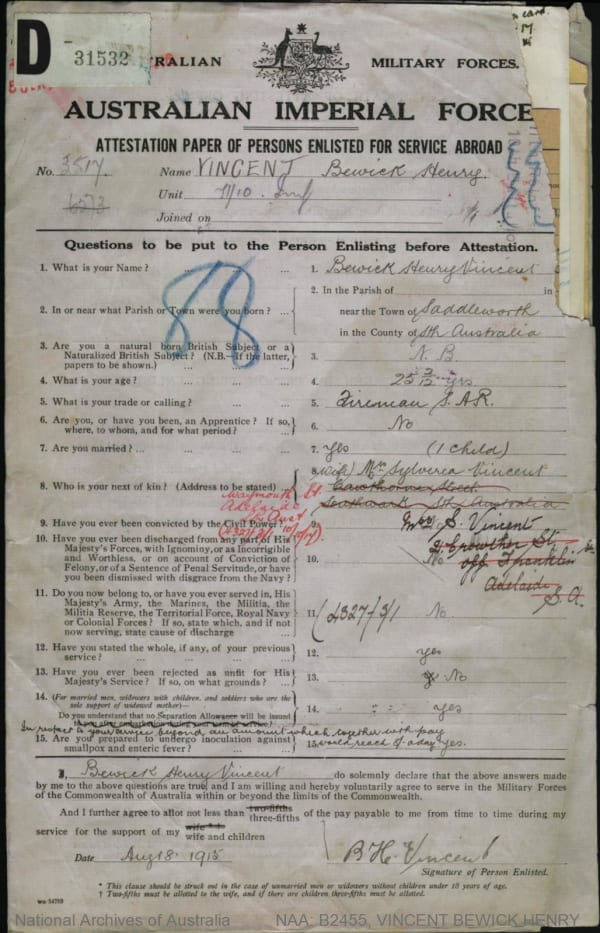 D
31532
RALIAN MILITARY FORCES.
AUSTRALIAN IMPERIAL FORCE
ATTESTATION PAPER OF PERSONS ENLISTED FOR SERVICE ABROAD
No. 3517. Name VINCENT Bewick Henry.
Unit
Joined on
Questions to be put to the Person Enlisting before Attestation.
88
1. What is your Name? ... ... ... 1. Bewick Henry Vincent
2. In or near what Parish or Town were you born? ... 2. In the Parish of in
near the Town of Saddleworth
in the County of Sth Australia
3. Are you a natural born British Subject or a
Naturalized British Subject? (N.B.—If the latter,
papers to be shown.) ... ... 3. N.B.
4. What is your age? ... ... ... 4. 25 3/12 yrs
5. What is your trade or calling? ... ... 5. Fireman S.A.R.
6. Are you, or have you been, an Apprentice? If so,
where, to whom, and for what period? ... 6. No
7. Are you married? ... ... ... 7. Yes (1 child)
8. Who is your next of kin? (Address to be stated) 8. (Wife) Mrs Sylveria Vincent
Cawthorne Street
Southwark Sth Australia
Waymouth St.
Adelaide
Mrs S. Vincent
Crowther St
off Franklin St
Adelaide
S.A.
9. Have you ever been convicted by the Civil Power? 9.
10. Have you ever been discharged from any part of His
Majesty's Forces, with Ignominy, or as Incorrigible
and Worthless, or on account of Conviction of
Felony, or of a Sentence of Penal Servitude, or have
you been dismissed with disgrace from the Navy? 10. No
11. Do you now belong to, or have you ever served in, His
Majesty's Army, the Marines, the Militia, the
Militia Reserve, the Territorial Force, Royal Navy
or Colonial Forces? If so, state which, and if not
now serving, state cause of discharge ... 11. (4327/3/1 No
12. Have you stated the whole, if any, of your previous
service? ... ... ... ... 12. yes
13. Have you ever been rejected as unfit for His
Majesty's Service? If so, on what grounds? ... 13. No
14. (For married men, widowers with children, and soldiers who are the
sole support of widowed mother)—
Do you understand that no Separation Allowance will be issued 14. yes
in respect to your service beyond an amount which together with pay
would reach 8/- a day
15. Are you prepared to undergo inoculation against
smallpox and enteric fever? ... ... 15. yes.
I, Bewick Henry Vincent do solemnly declare that the above answers made
by me to the above questions are true, and I am willing and hereby voluntarily agree to serve in the Military Forces
of the Commonwealth of Australia within or beyond the limits of the Commonwealth.
And I further agree to allot not less than two-fifths three-fifths of the pay payable to me from time to time during my
service for the support of my wife * † wife and children
Date Aug 18 1915 B H Vincent
Signature of Person Enlisted.
* This clause should be struck out in the case of unmarried men or widowers without children under 18 years of age.
† Two-fifths must be allotted to the wife, and if there are children three-fifths must be allotted.
National Archives of Australia NAA: B2455, VINCENT BEWICK HENRY